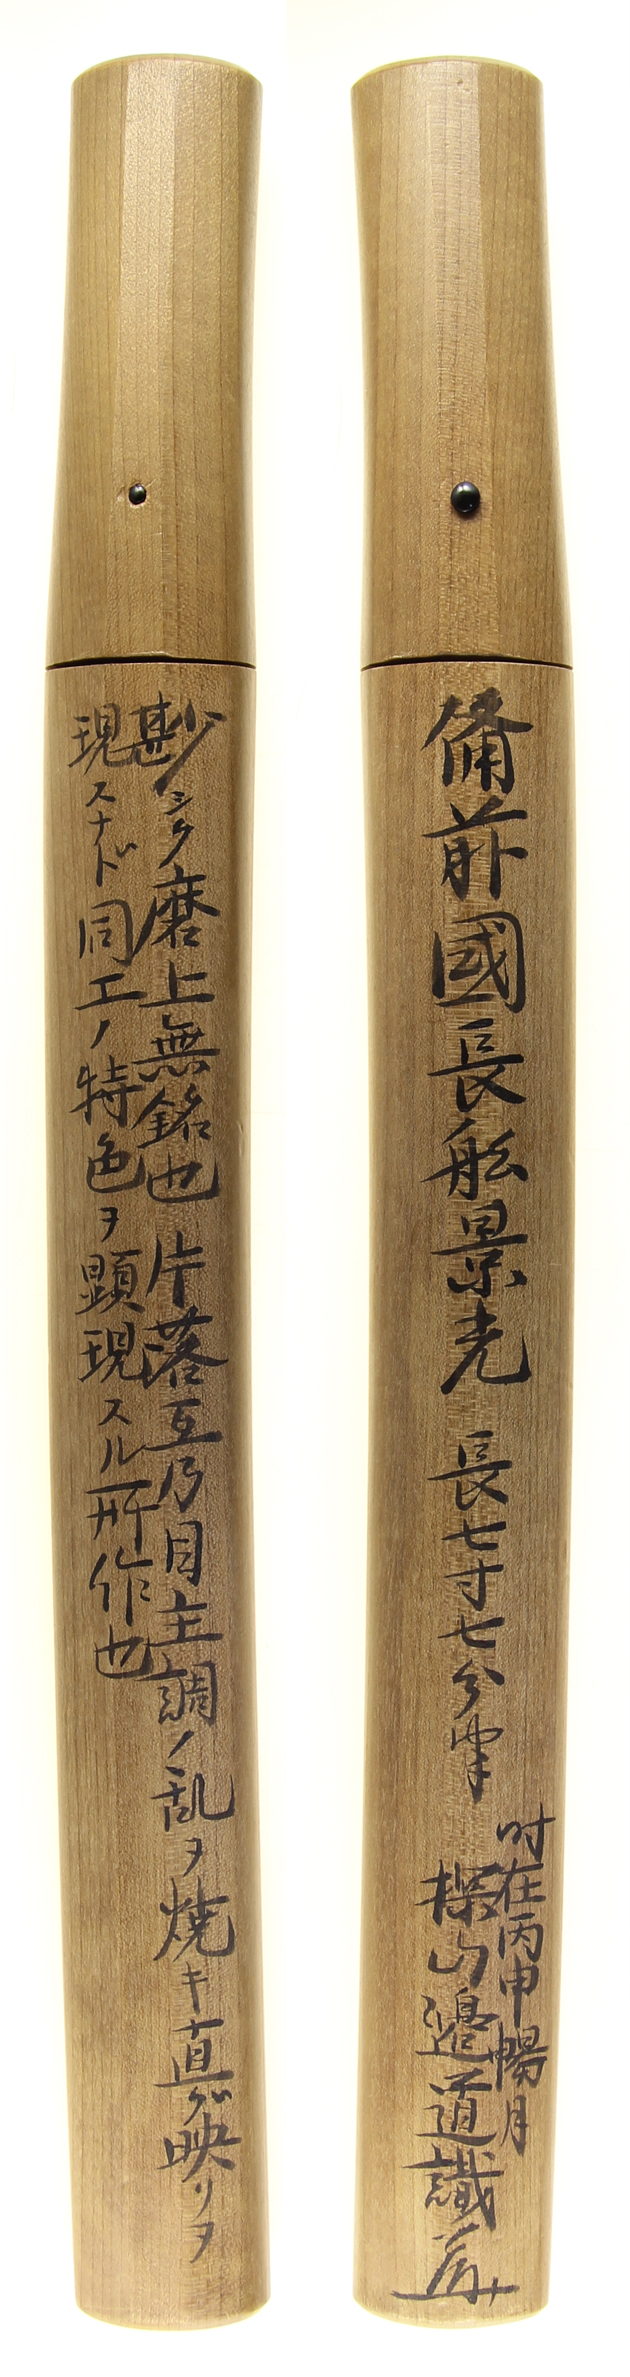 備前國長舩景光 長七寸七分半
時在丙申暢月
探山邉道識
尠シク磨上無銘也 片落互乃目主調ノ乱ヲ焼キ直グ映リヲ
現スナド同工ノ特色ヲ顕現スル所作也